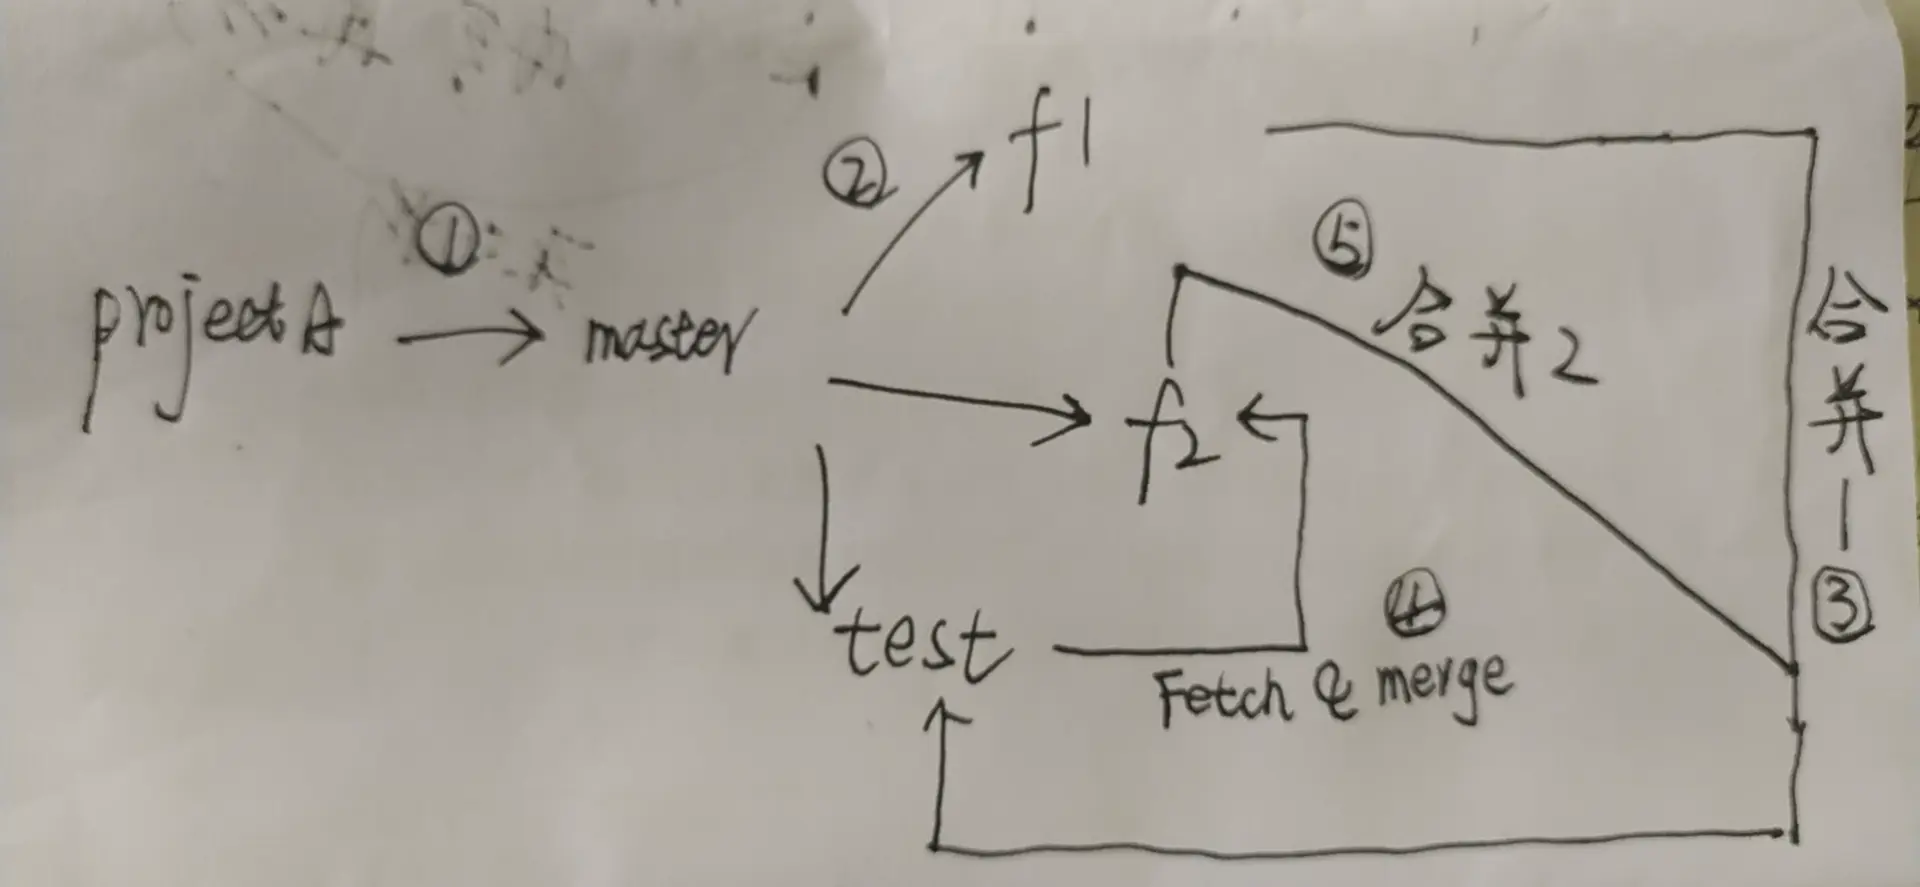 ② f1
① ⑤
projectA → master 合并2
合并1
f2
④ ③
test
Fetch & merge